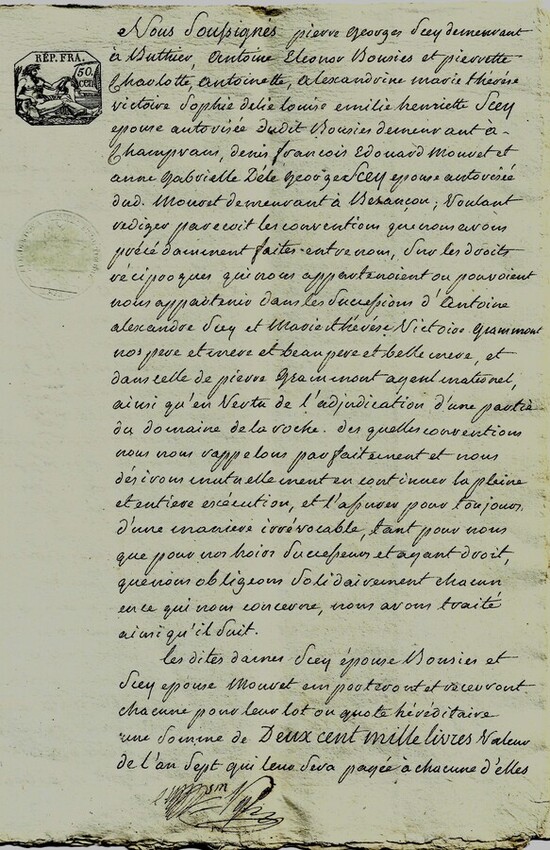 Nous Soussignés pierre Georges Scey demeurant
RÉP. FRA.
50.
cen
à Buthier, antoine Eleonor Bousies et pierrette
Charlotte, antoinette, alexandrine marie thérèse
victoire Sophie delie louise emilie henriette Scey
epouse autorisée dudit Bousies demeurant à
Champvans, denis françois Edouard Mouret et
anne Gabrielle Déle Georges Scey epouse autorisée
dud. Mouret demeurant à Bezançon; Voulant
rediger par ecrit les conventions que nous avons
précédamment faites entre nous, Sur les droits
réciproques qui nous appartenoient ou pouvoient
nous appartenir dans les Successions d'Antoine
alexandre Scey et Marie thérèse Victoire Grammont
nos pere et mere et beau pere et belle mere, et
dans celle de pierre Grammont ayeul maternel,
ainsi qu'en Vertu de l'adjudication d'une partie
du domaine de la roche. des quelles conventions
nous nous rappelons parfaitement et nous
désirons mutuellement en continuer la pleine
et entiere exécution, et l'assurer pour toujours
d'une maniere irrévocable, tant pour nous
que pour nos hoirs Successeurs et ayant droit,
que nous obligeons Solidairement chacun
en ce qui nous concerne, nous avons traité
ainsi qu'il Suit.
les dites dames Scey épouse Bousies et
Scey epouse Mouret emporteront et recevront
chacune pour leur lot ou quote héréditaire
une Somme de Deux cent mille livres Valeur
de l'an Sept qui leur Sera payée à chacune d'elles